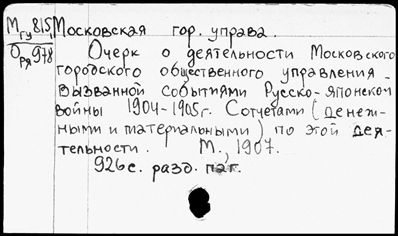 МГУ 815, Московская гор. управа.
ОРЯ 978 Очерк о деятельности Московского
городского общественного управления
вызванной событиями Русско-Японской
войны 1904-1905г. С отчетами (денеж-
ными и материальными) по этой дея-
тельности. М., 1907.
926с. разд. паг.